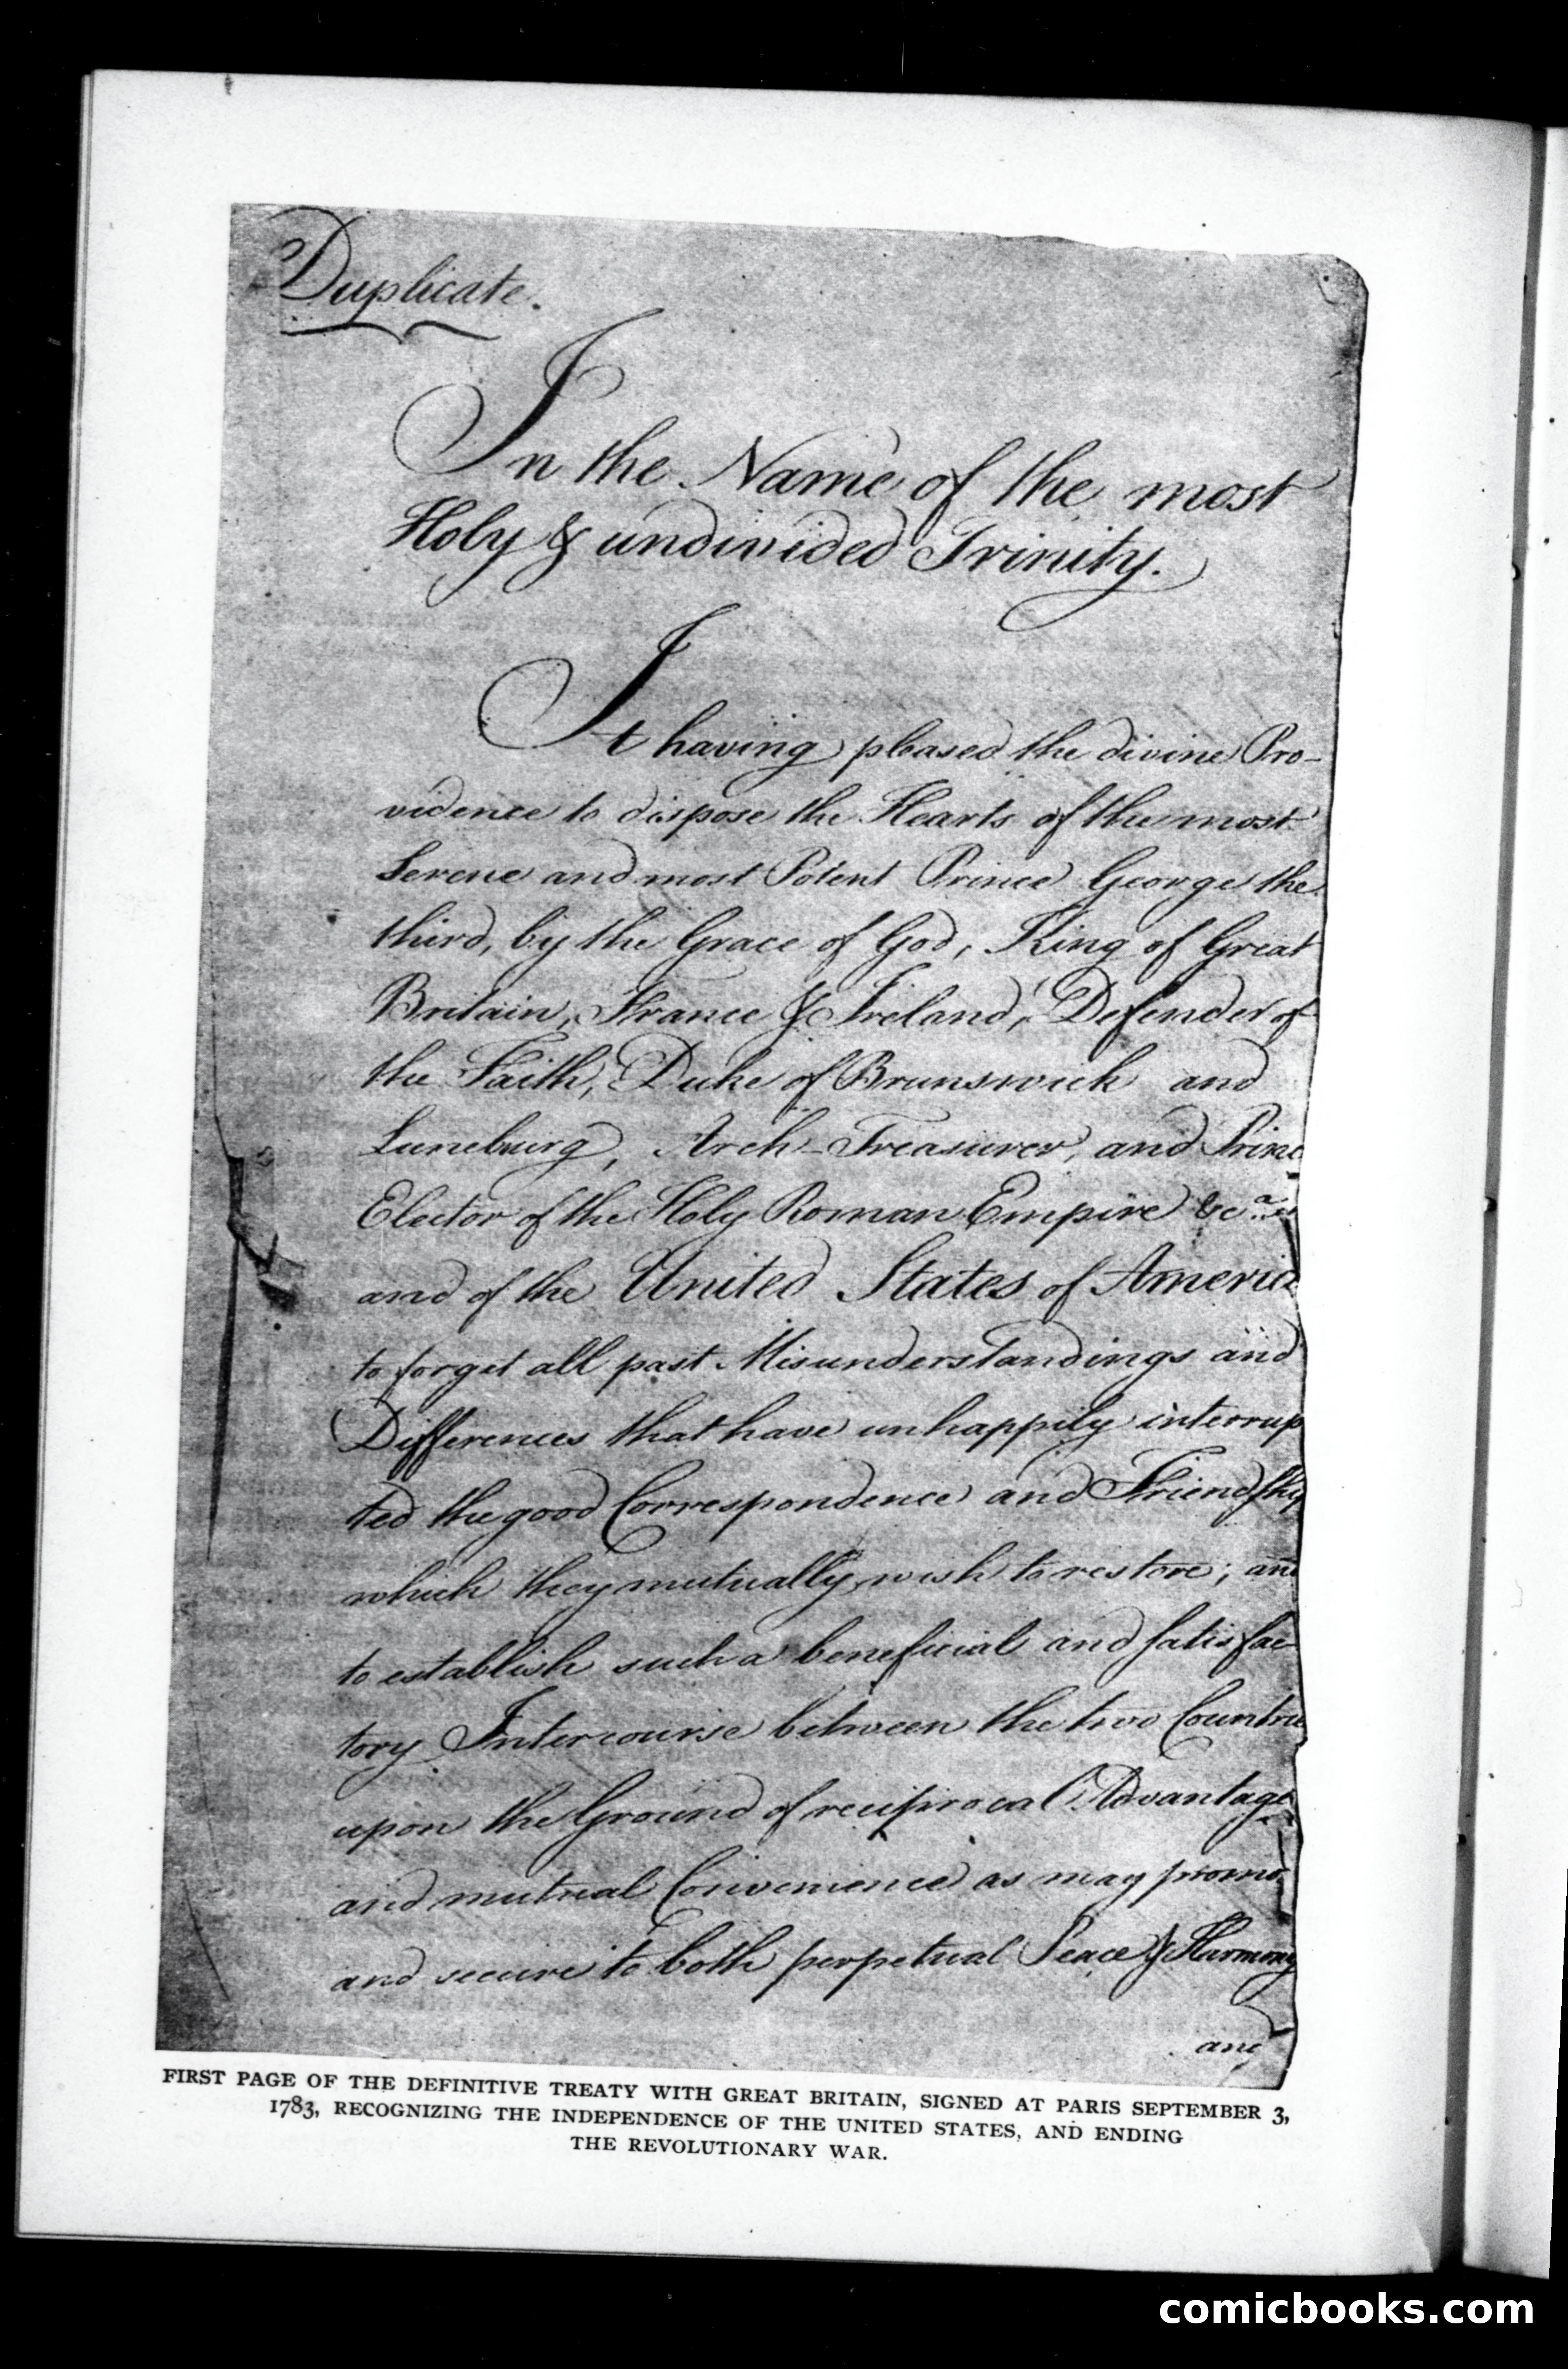 Duplicate.
In the Name of the most
Holy & undivided Trinity.
It having pleased the divine Pro-
vidence to dispose the Hearts of the most
Serene and most Potent Prince George the
third, by the Grace of God, King of Great
Britain, France & Ireland, Defender of
the Faith, Duke of Brunswick and
Luneburg, Arch-Treasurer, and Princ
Elector of the Holy Roman Empire &c.a
and of the United States of Americ
to forget all past Misunderstandings and
Differences that have unhappily interrup
ted the good Correspondence and Friendship
which they mutually wish to restore; and
to establish such a beneficial and satisfac-
tory Intercourse between the two Countrie
upon the Ground of reciprocal Advantage
and mutual Convenience as may promo
and secure to both perpetual Peace & Harmony
and
FIRST PAGE OF THE DEFINITIVE TREATY WITH GREAT BRITAIN, SIGNED AT PARIS SEPTEMBER 3,
1783, RECOGNIZING THE INDEPENDENCE OF THE UNITED STATES, AND ENDING
THE REVOLUTIONARY WAR.
comicbooks.com